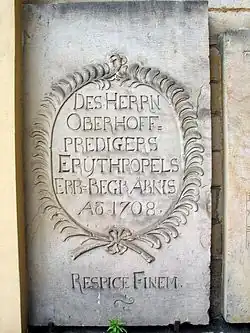 DES HERRN
OBERHOFF=
PREDIGERS
ERYTHROPELS
ERB=BEGRÄBNIS
Aō. 1708.
RESPICE FINEM.